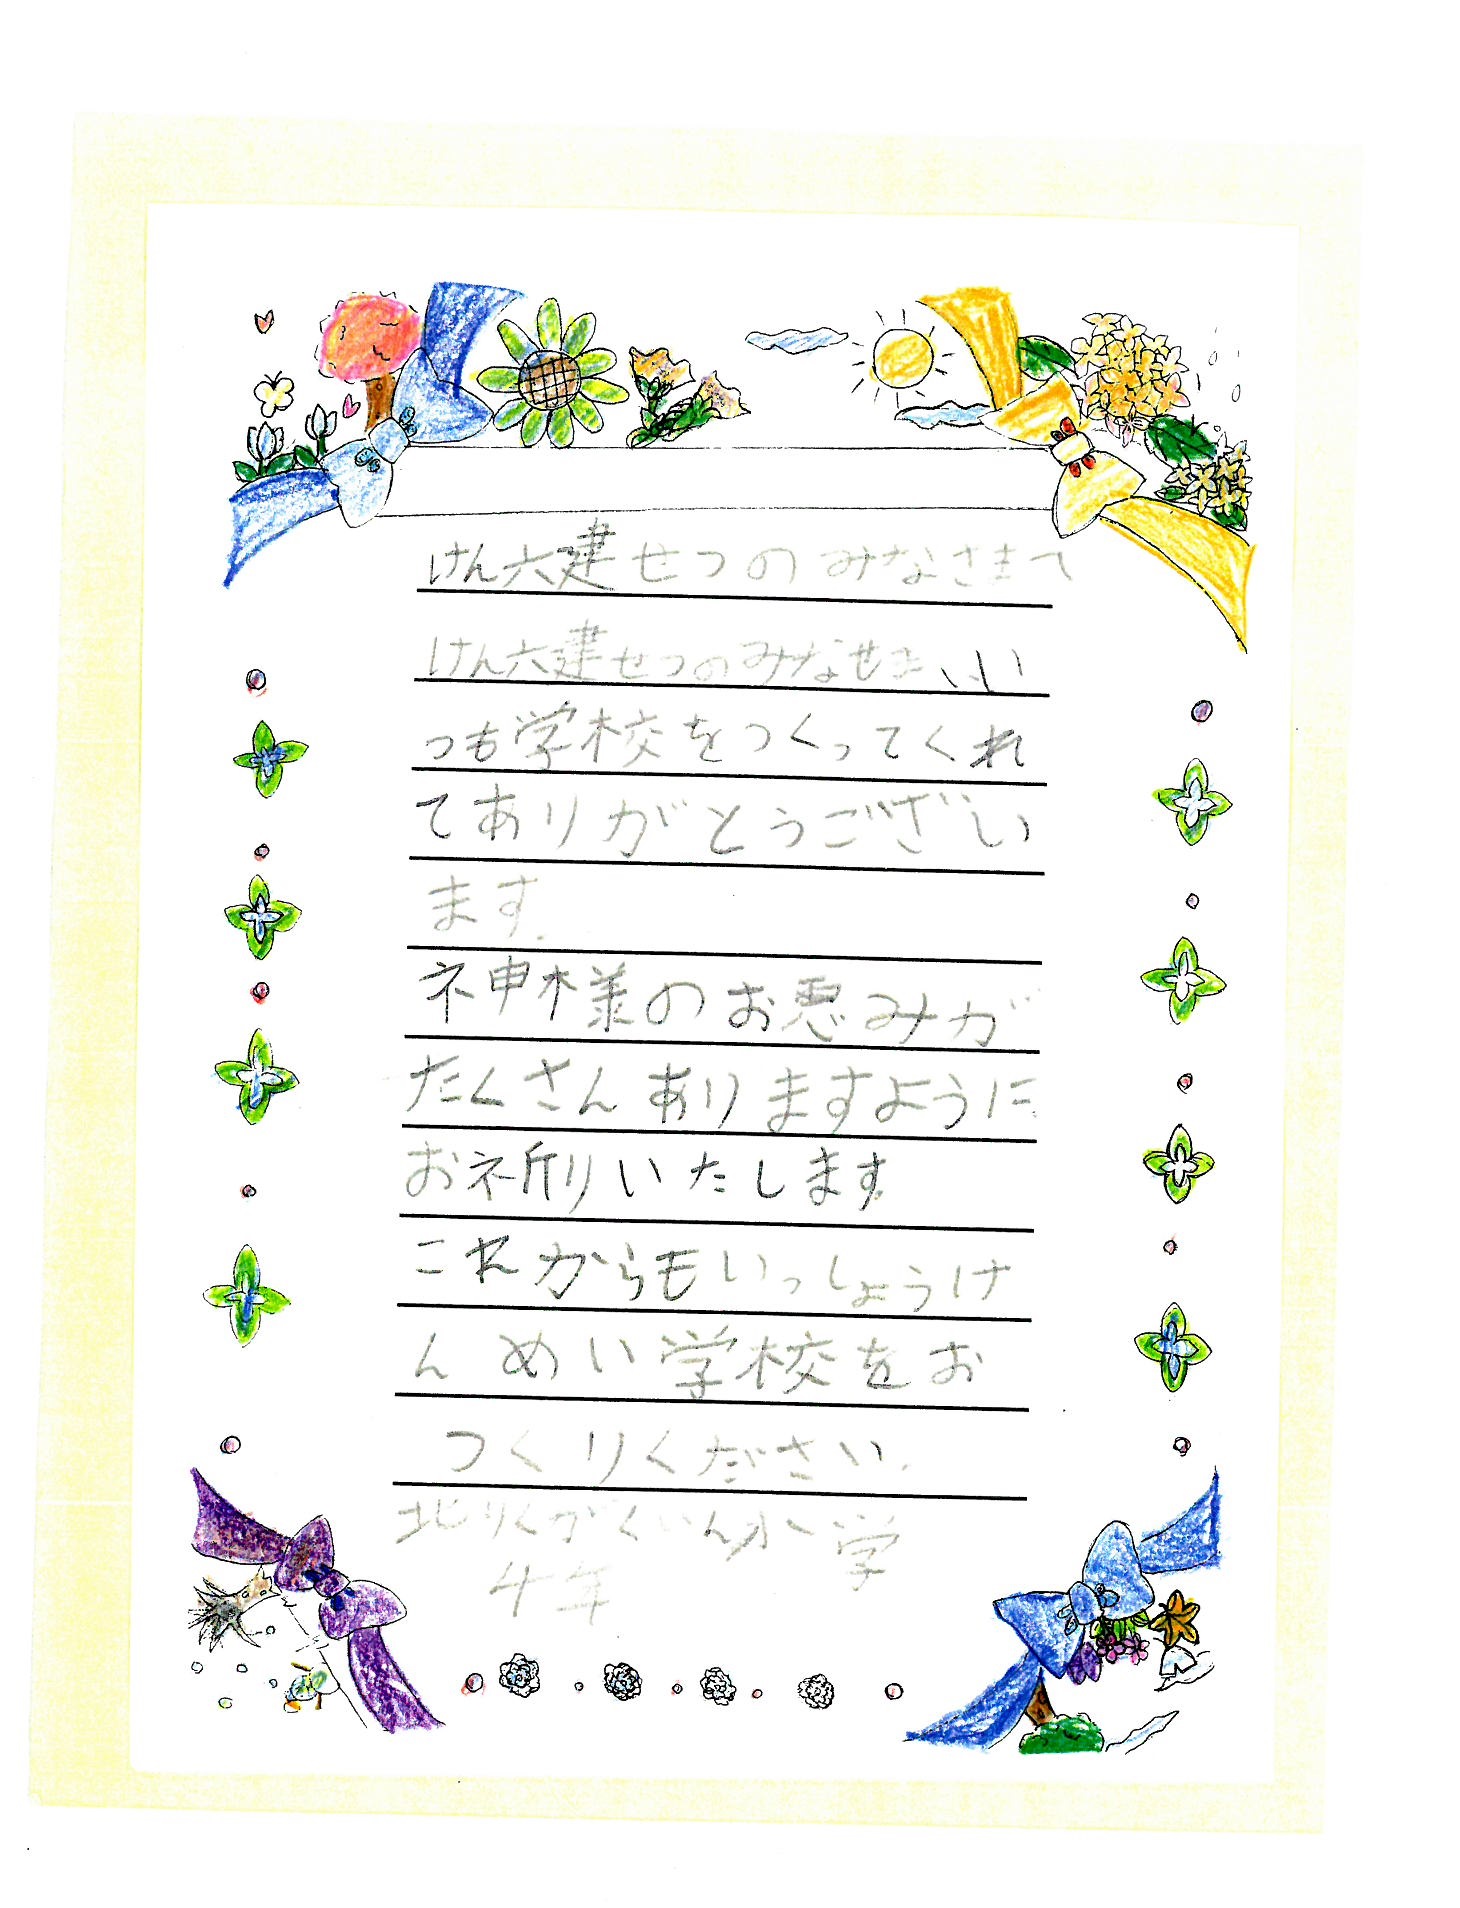 けん六建せつのみなさまへ
けん六建せつのみなせま、い
つも学校をつくってくれ
てありがとうござい
ます。
神様のお恵みが
たくさんありますように
お祈りいたします
これからもいっしょうけ
んめい学校をお
つくりください。
北りくがくいん小学
4年